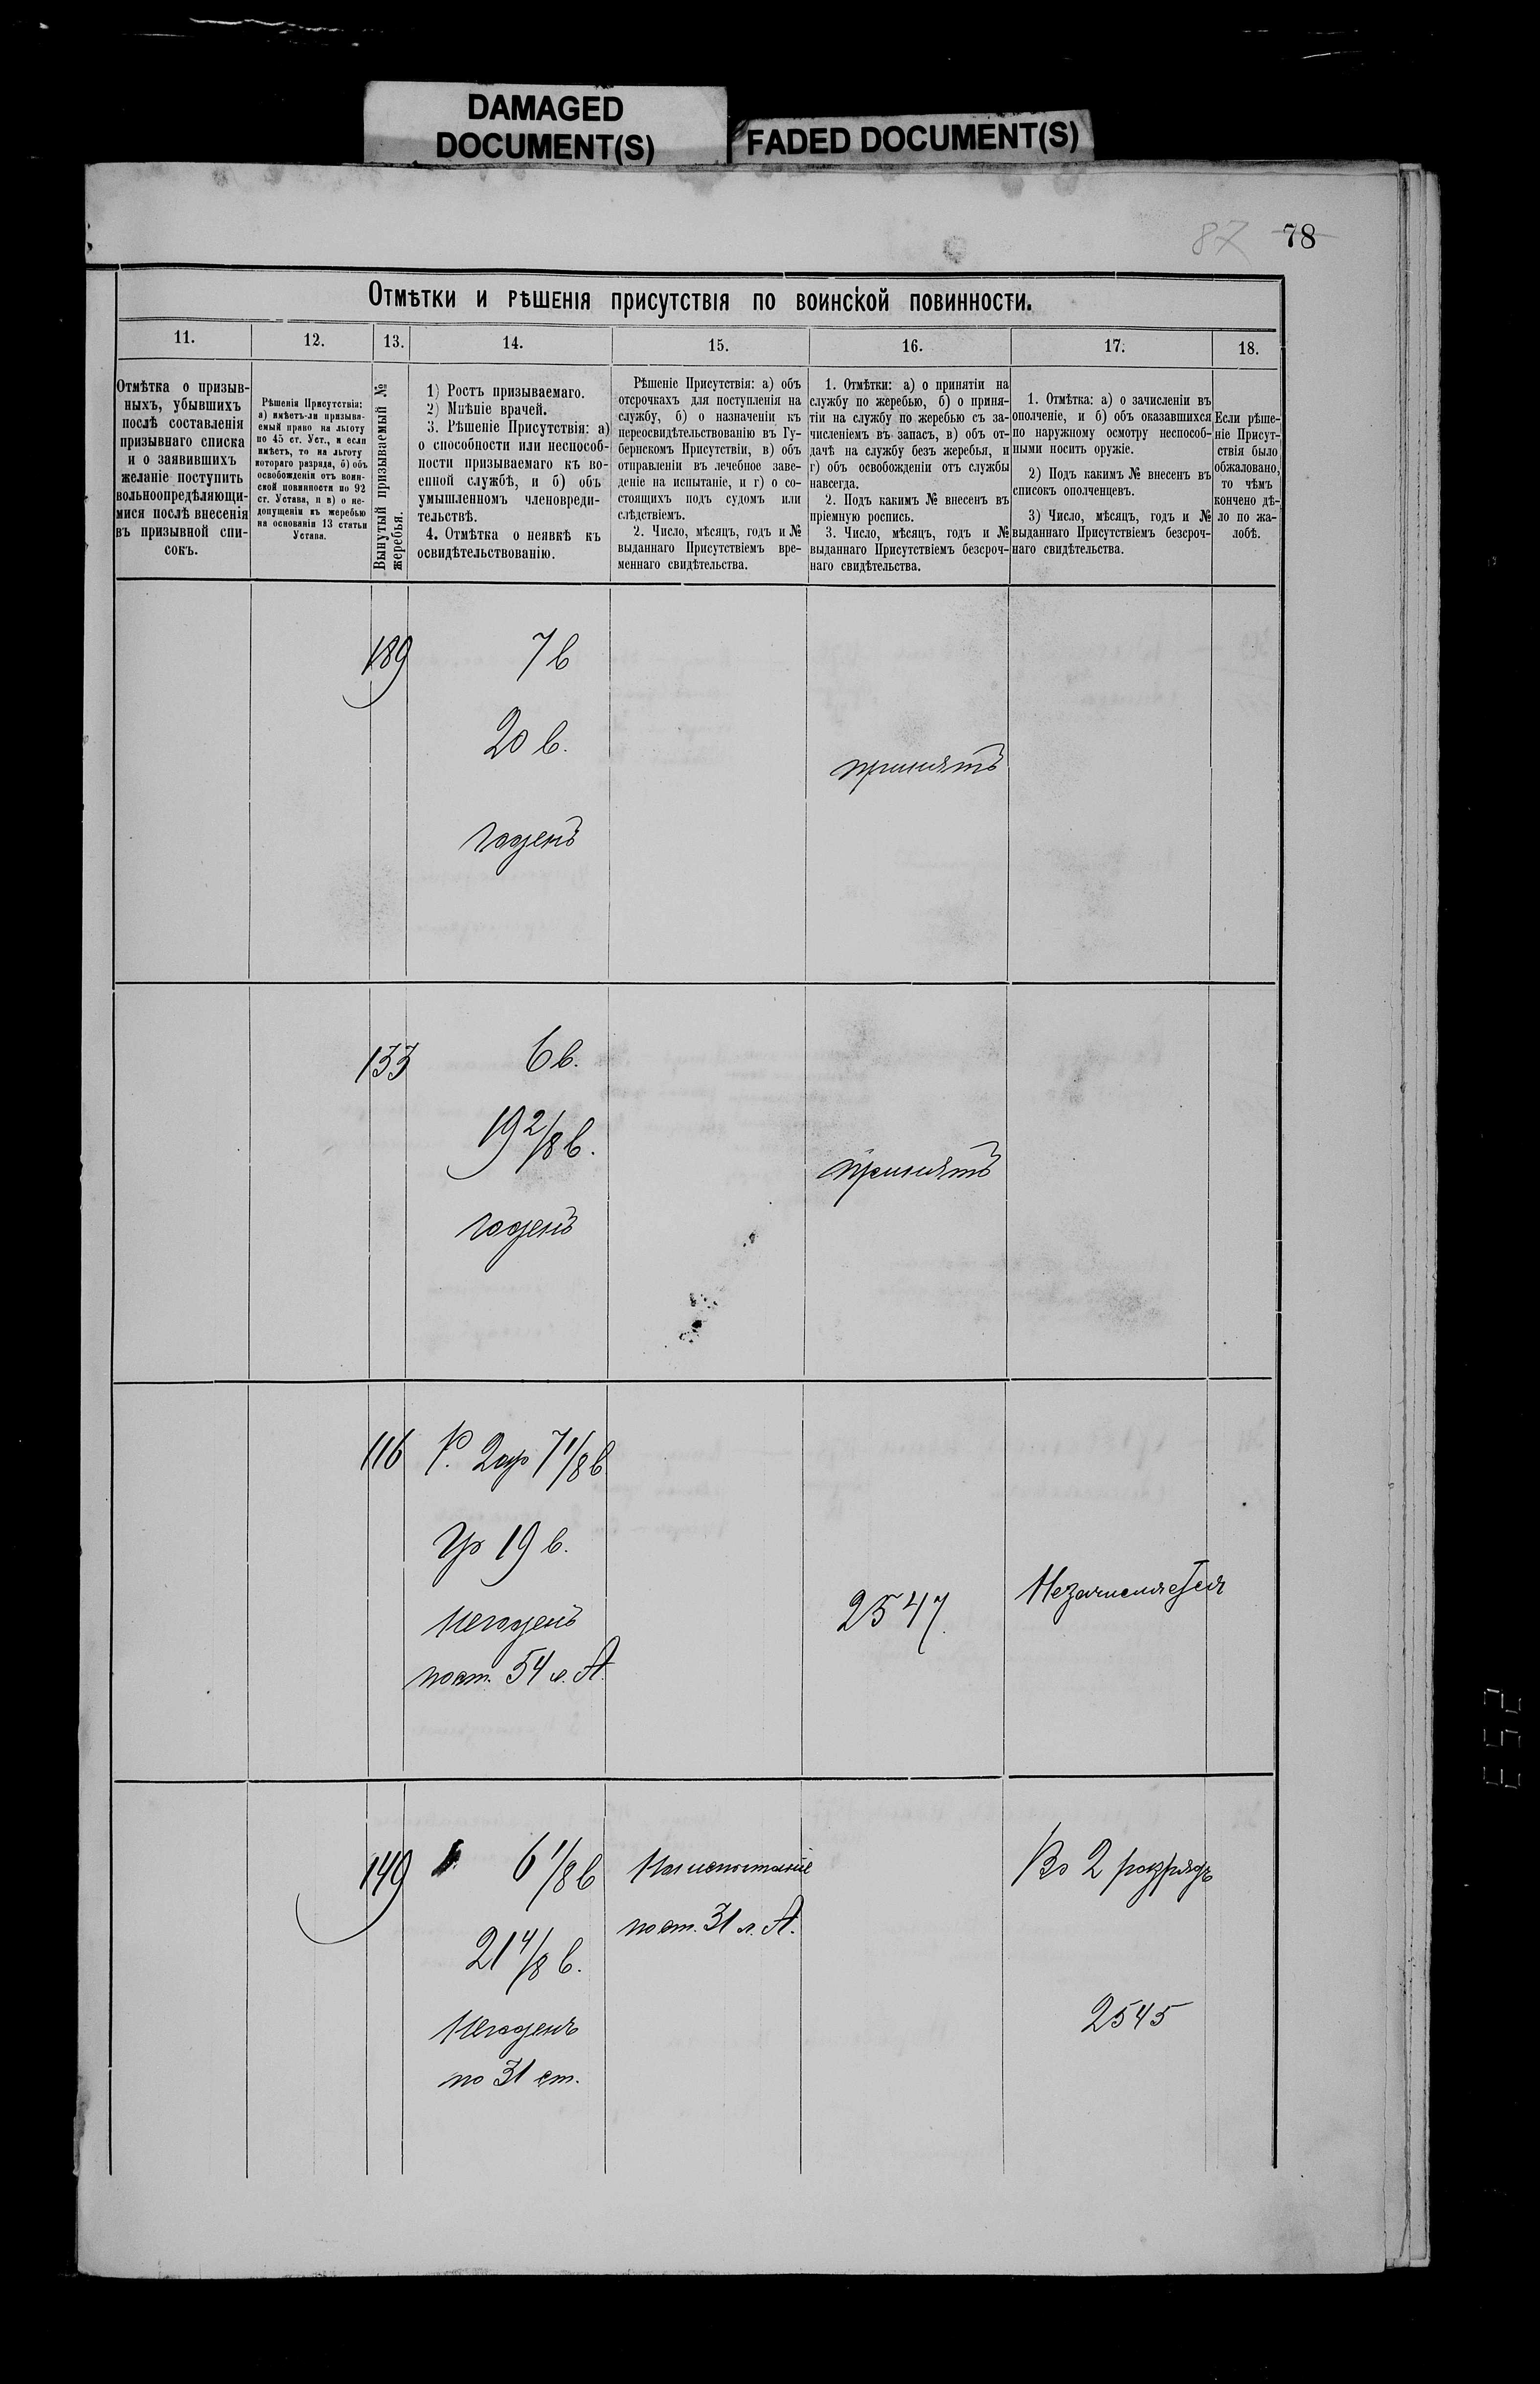 DAMAGED
DOCUMENT(S)
FADED DOCUMENT(S)
87 78
Отмѣтки и рѣшенія присутствія по воинской повинности.
11. 12. 13. 14. 15. 16. 17. 18.
Отмѣтка о призыв-
ныхъ, убывшихъ
послѣ составленія
призывнаго списка
и о заявившихъ
желаніе поступить
вольноопредѣляющи-
мися послѣ внесенія
въ призывной спи-
сокъ.
Рѣшенія Присутствія:
а) имѣетъ-ли призыва-
емый право на льготу
по 45 ст. Уст., и если
имѣетъ, то на льготу
котораго разряда, б) объ
освобожденіи отъ воин-
ской повинности по 92
ст. Устава, и в) о не-
допущеніи къ жеребью
на основаніи 13 статьи
Устава.
Вынутый призываемый №
жеребья.
1) Ростъ призываемаго.
2) Мнѣніе врачей.
3. Рѣшеніе Присутствія: а)
о способности или неспособ-
ности призываемаго къ во-
енной службѣ, и б) объ
умышленномъ членовреди-
тельствѣ.
4. Отмѣтка о неявкѣ къ
освидѣтельствованію.
Рѣшеніе Присутствія: а) объ
отсрочкахъ для поступленія на
службу, б) о назначеніи къ
переосвидѣтельствованію въ Гу-
бернскомъ Присутствіи, в) объ
отправленіи въ лечебное заве-
деніе на испытаніе, и г) о со-
стоящихъ подъ судомъ или
слѣдствіемъ.
2. Число, мѣсяцъ, годъ и №
выданнаго Присутствіемъ вре-
меннаго свидѣтельства.
1. Отмѣтки: а) о принятіи на
службу по жеребью, б) о приня-
тіи на службу по жеребью съ за-
численіемъ въ запасъ, в) объ от-
дачѣ на службу безъ жеребья, и
г) объ освобожденіи отъ службы
навсегда.
2. Подъ какимъ № внесенъ въ
пріемную роспись.
3. Число, мѣсяцъ, годъ и №
выданнаго Присутствіемъ безсроч-
наго свидѣтельства.
1. Отмѣтка: а) о зачисленіи въ
ополченіе, и б) объ оказавшихся
по наружному осмотру неспособ-
ными носить оружіе.
2) Подъ какимъ № внесенъ въ
списокъ ополченцевъ.
3) Число, мѣсяцъ, годъ и №
выданнаго Присутствіемъ безсроч-
наго свидѣтельства.
Если рѣше-
ніе Присут-
ствія было
обжаловано,
то чѣмъ
кончено дѣ-
ло по жа-
лобѣ.
189 7 в
20 в.
принятъ
годенъ
133 6 в.
19 2/8 в.
принятъ
годенъ
116 Р. 2 ар 7 1/8 в
Гр 19 в.
Негоденъ
2547
Незачисляется
по ст. 54 л. А.
149 6 1/8 в
На испытаніе
Во 2 разрядъ
по ст. 31 л. А.
21 4/8 в.
Негоденъ
2545
по 31 ст.
E52